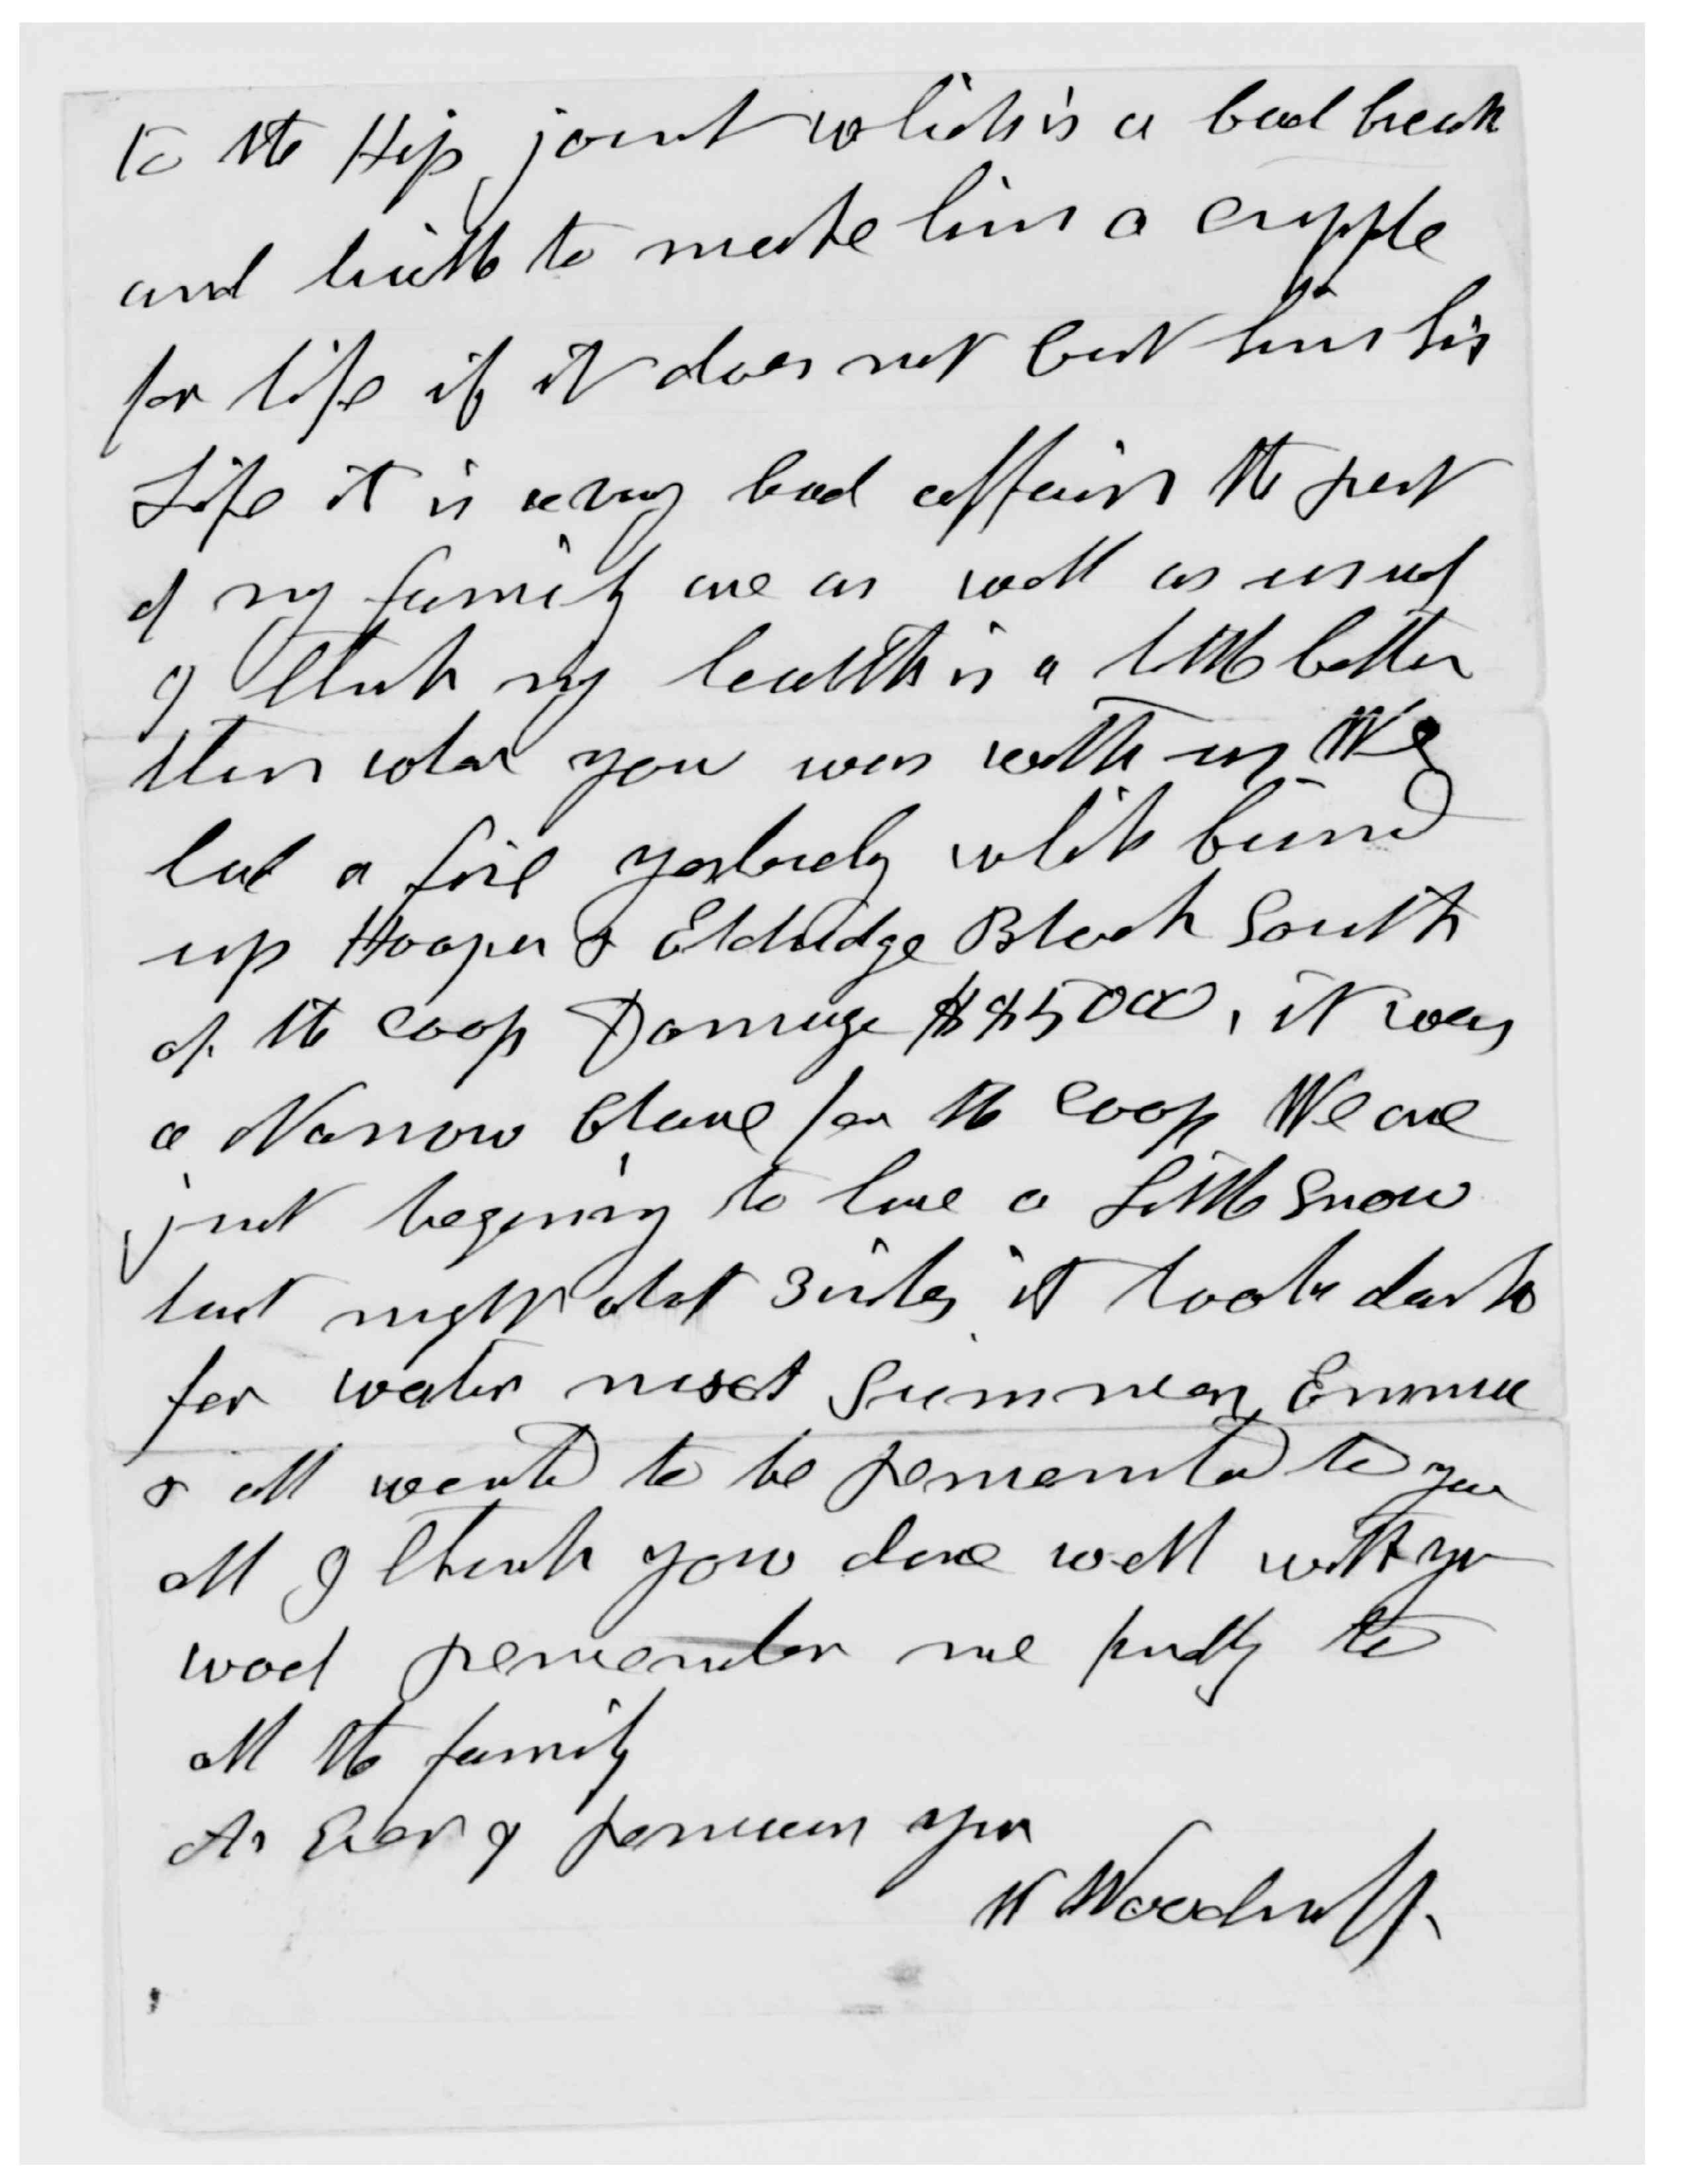 to the Hip joint which is a bad break
and liable to make him a cripple
for life if it does not cost him his
Life it is a very bad affair the rest
of my family are as well as usual
I think my health is a little better
than when you was with us We
had a fire yesterday which burned
up Hooper & Eldridge Block South
of the coop Damage $45000, it was
a Narrow chance for the coop We are
just begining to have a Little Snow
last night about 3 inches it looks dark
for water next Summer, Emma
& all wants to be remembered to you
all I think you done well with your
wool remember me kindly to
all the family
As Ever I remain your
W Woodruff.